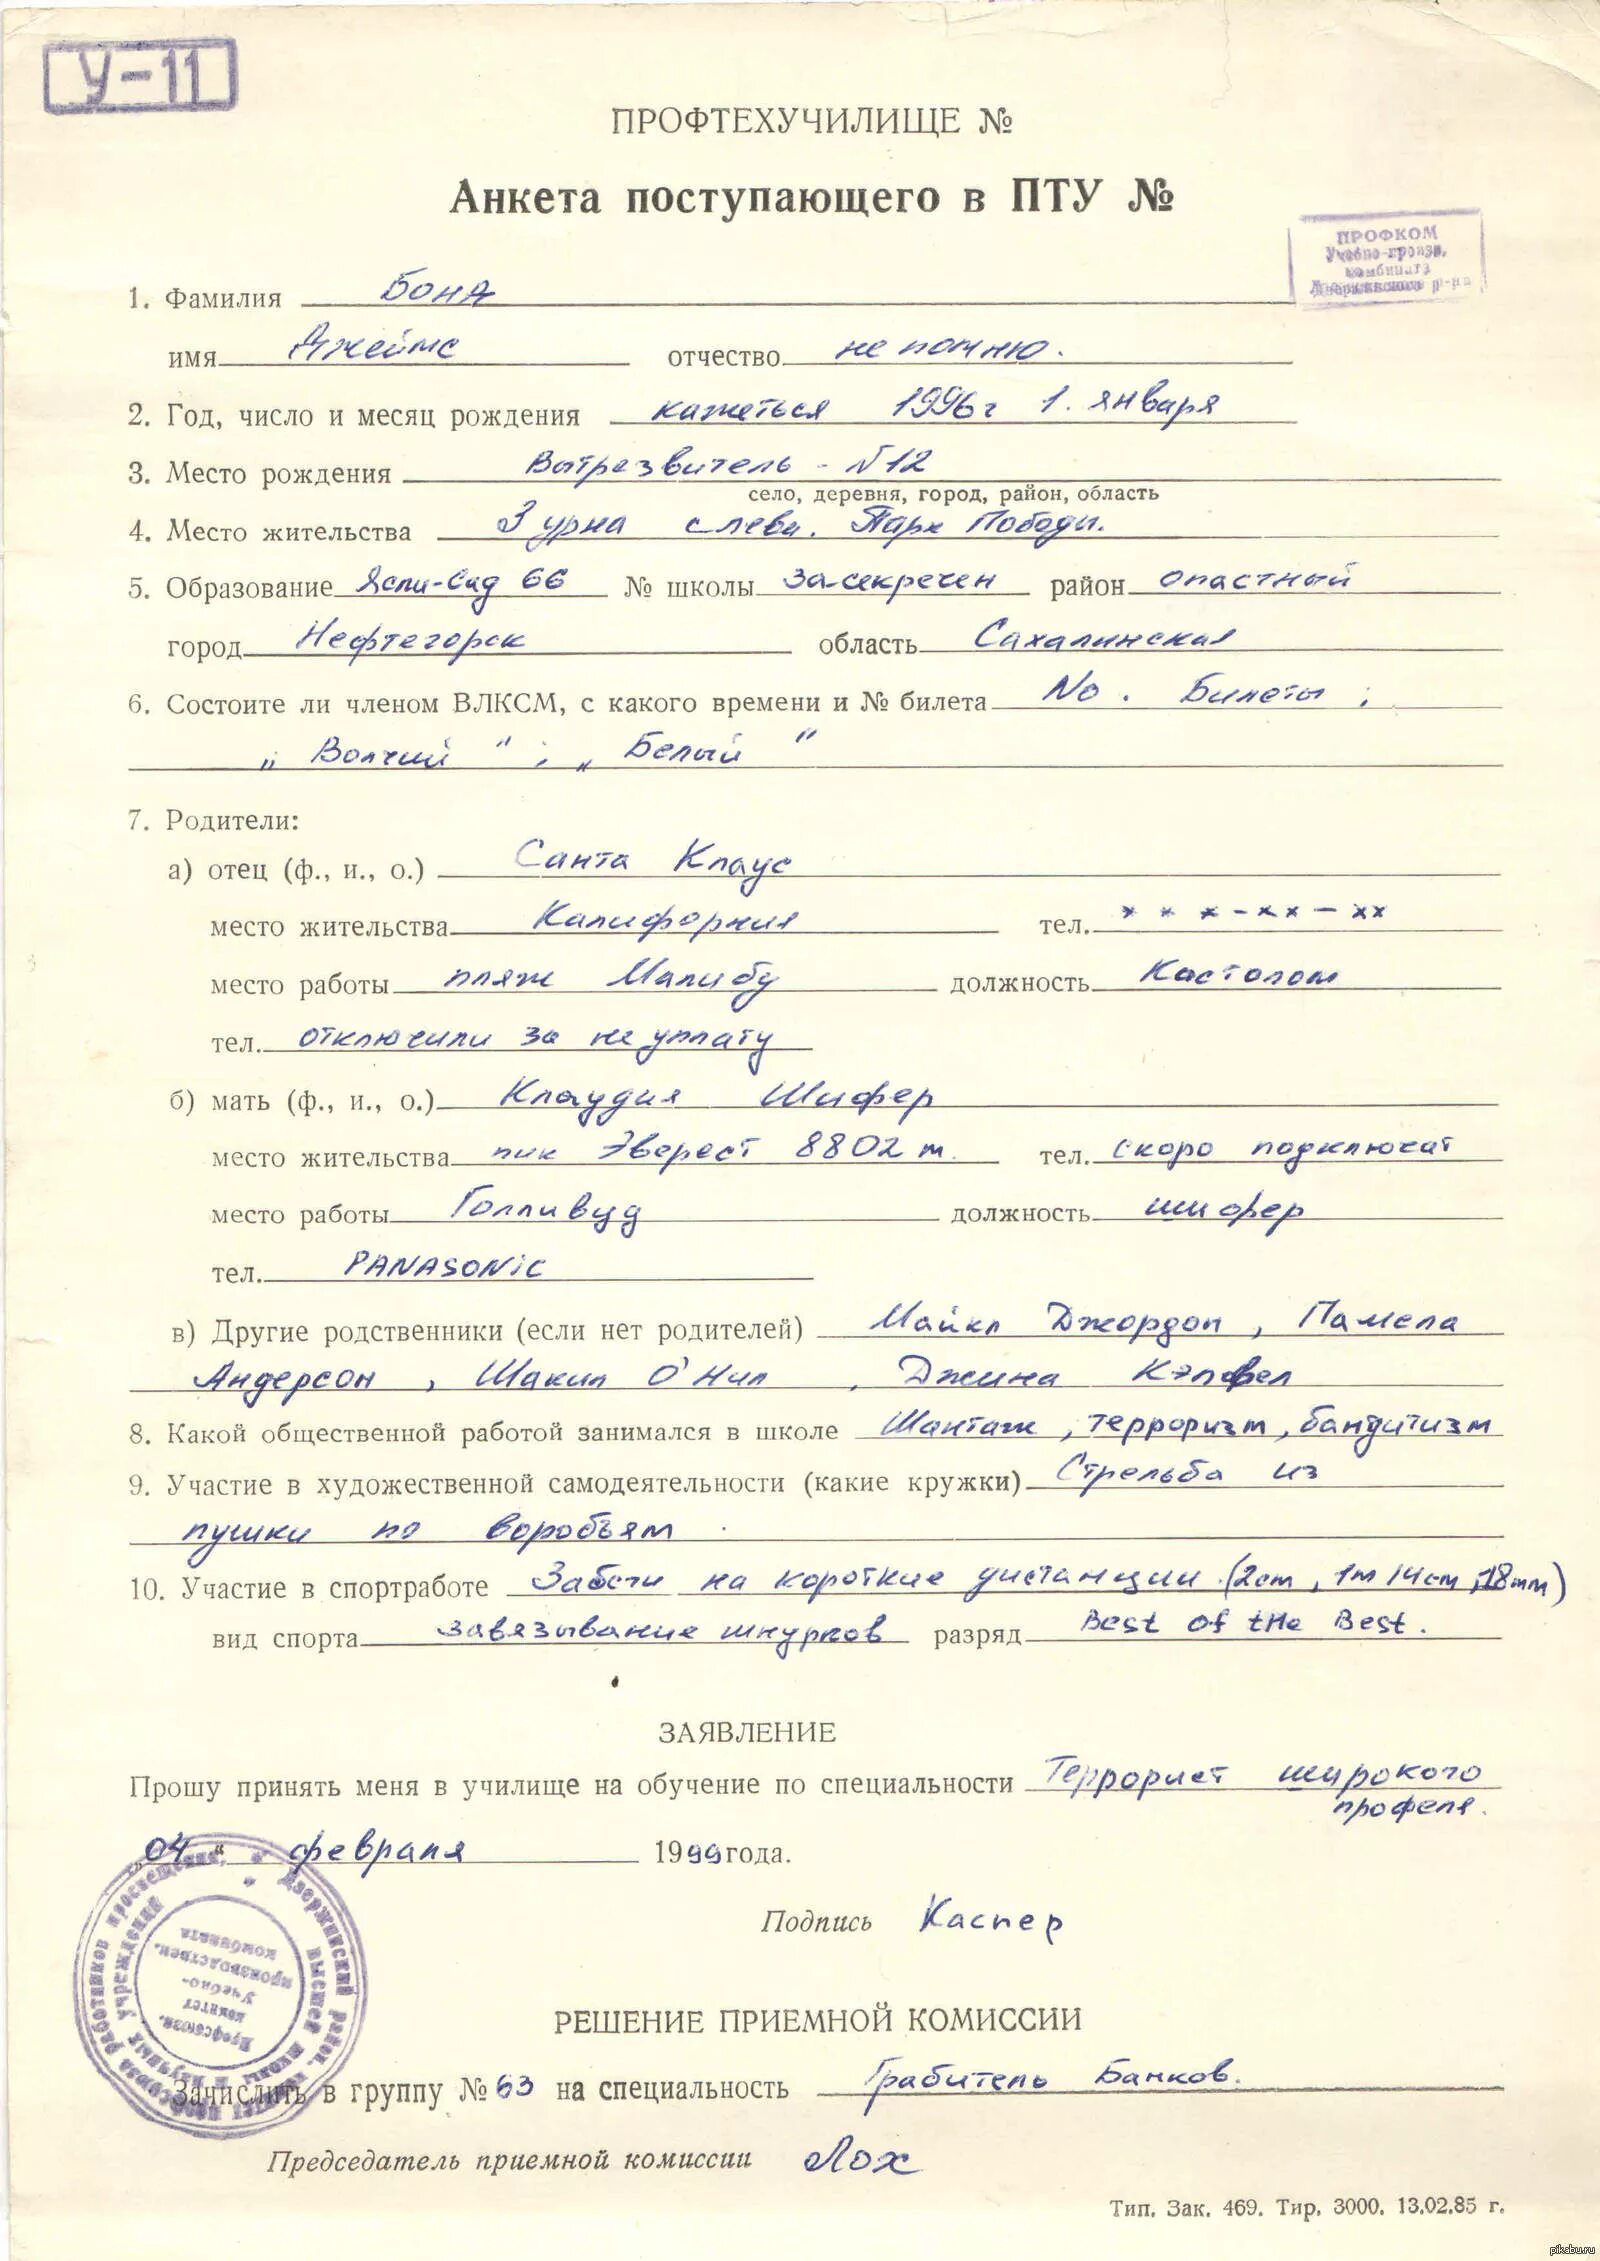 У-11
ПРОФТЕХУЧИЛИЩЕ №
Анкета поступающего в ПТУ №
ПРОФКОМ
Учебно-произв.
комбината
Дзержинского р-на
1. Фамилия Бонд
имя Джеймс отчество не помню.
2. Год, число и месяц рождения кажеться 1996 г 1. января
3. Место рождения Вытрезвитель - N12
село, деревня, город, район, область
4. Место жительства 3 урна слева. Парк Победы.
5. Образование Ясли-сад 66 № школы засекречен район опастный
город Нефтегорск область Сахалинская
6. Состоите ли членом ВЛКСМ, с какого времени и № билета No. Билеты ;
„ Волчий " ; „ Белый "
7. Родители:
а) отец (ф., и., о.) Санта Клаус
место жительства Калифорния тел. х х х - хх - хх
место работы пляж Малибу должность Кастолом
тел. отключили за не уплату
б) мать (ф., и., о.) Клаудия Шифер
место жительства пик Эверест 8802 м. тел. скоро подключат
место работы Голливуд должность шифер
тел. PANASONiC
в) Другие родственники (если нет родителей) Майкл Джордон, Памела
Андерсон, Шакил О'Нил, Джина Кэпвел
8. Какой общественной работой занимался в школе Шантаж, терроризм, бандитизм
9. Участие в художественной самодеятельности (какие кружки) Стрельба из
пушки по воробъям.
10. Участие в спортработе Забеги на короткие дистанции. (2см, 1м 14см, 18мм)
вид спорта завязывание шнурков разряд Best of tHe Best.
ЗАЯВЛЕНИЕ
Прошу принять меня в училище на обучение по специальности Террорист широкого
профеля.
„04" февраля 1999 года.
Подпись Каспер
РЕШЕНИЕ ПРИЕМНОЙ КОМИССИИ
Зачислить в группу № 63 на специальность Грабитель Банков.
Председатель приемной комиссии Лох
Профсоюзн.
комитет
Учебно-
производствен.
комбината
Тип. Зак. 469. Тир. 3000. 13.02.85 г.
pikabu.ru